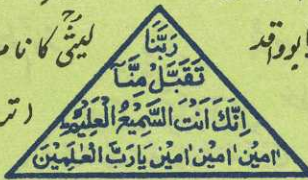 ابو واقد لیثیؓ کا نام
رَبَّنَا
تَقَبَّلْ مِنَّا
اِنَّكَ اَنْتَ السَّمِيْعُ الْعَلِيْمُ
اٰمِيْن اٰمِيْن اٰمِيْن يَارَبَّ الْعٰلَمِيْنَ